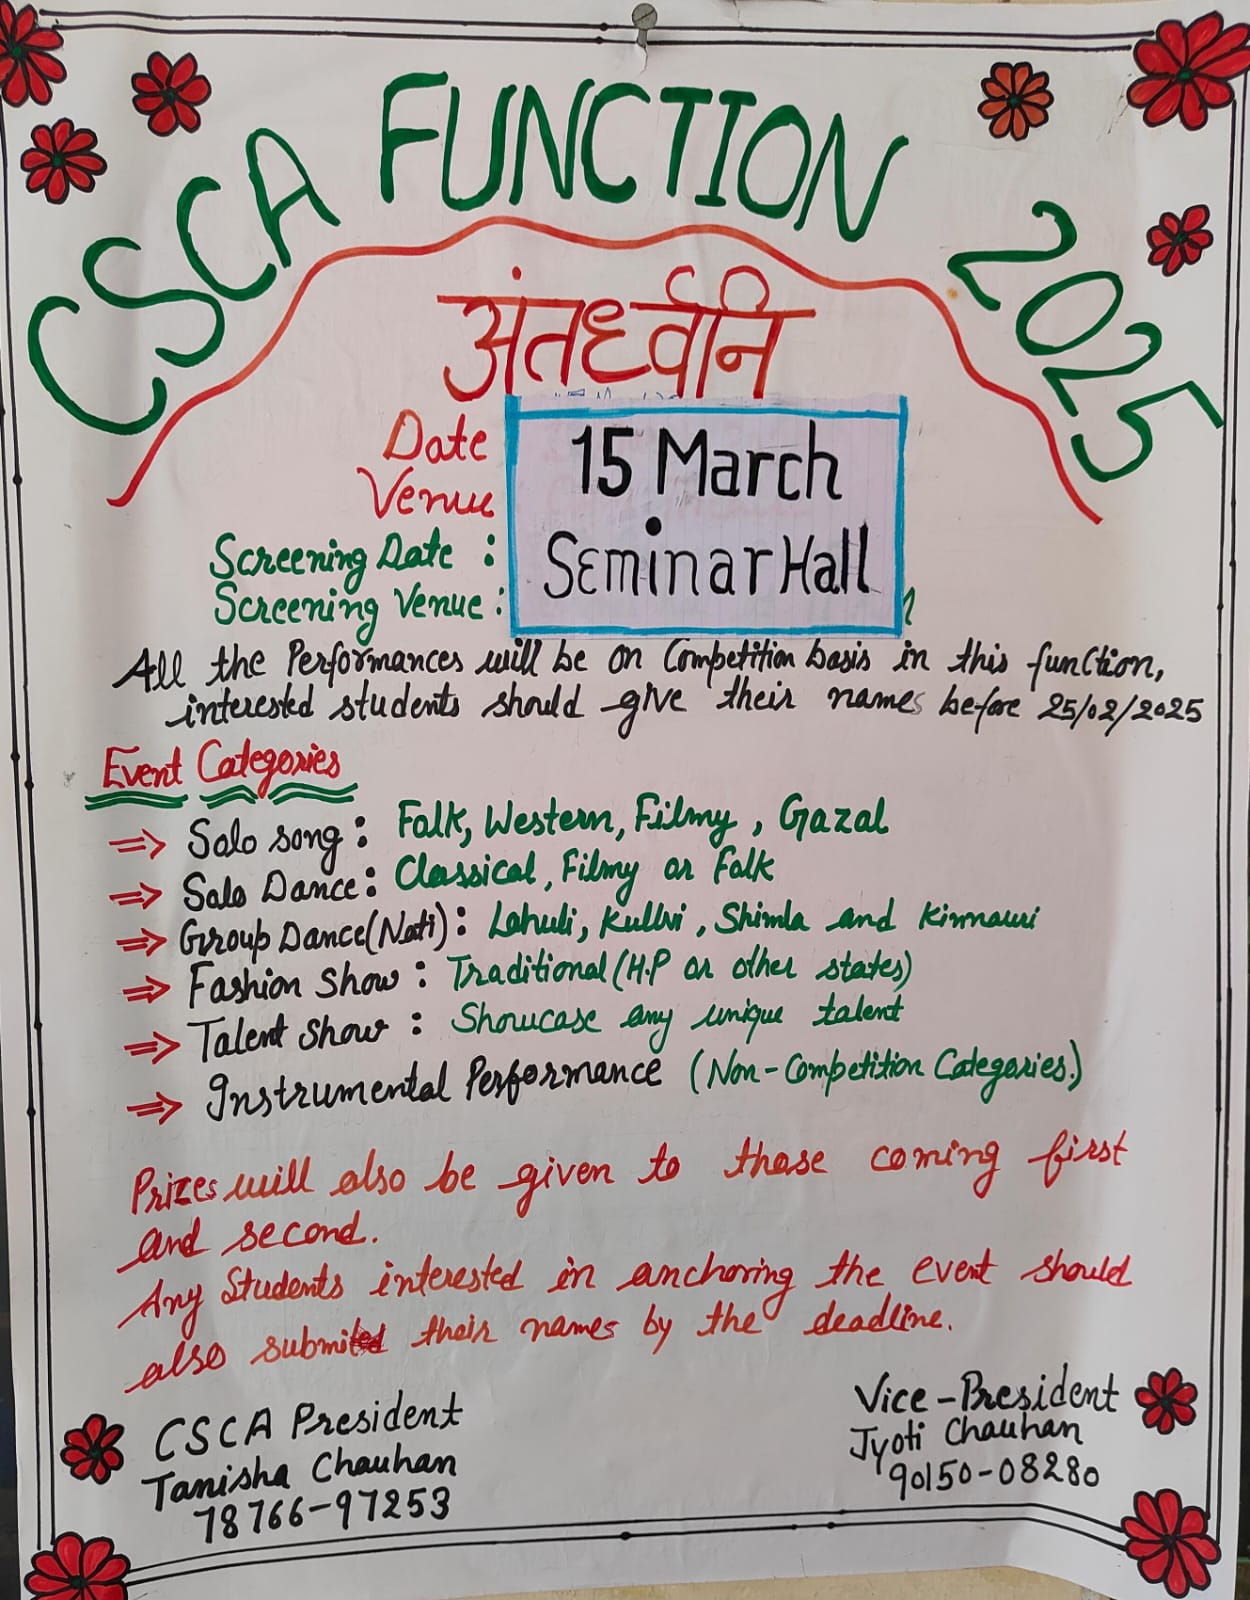 CSCA FUNCTION 2025
अंतर्ध्वनि
Date
15 March
Venue
Seminar Hall
Screening Date :
Screening Venue :
All the Performances will be on Competition basis in this function,
interested students should give their names before 25/02/2025
Event Categories
⇒ Solo song : Folk, Western, Filmy, Gazal
⇒ Solo Dance : Classical, Filmy or Folk
⇒ Group Dance (Nati) : Lahuli, Kullvi, Shimla and Kinnauri
⇒ Fashion Show : Traditional (H.P or other states)
⇒ Talent Show : Showcase any unique talent
⇒ Instrumental Performance (Non-Competition Categories.)
Prizes will also be given to those coming first
and second.
Any Students interested in anchoring the event should
also submit their names by the deadline.
CSCA President
Tanisha Chauhan
78766-97253
Vice-President
Jyoti Chauhan
90150-08280